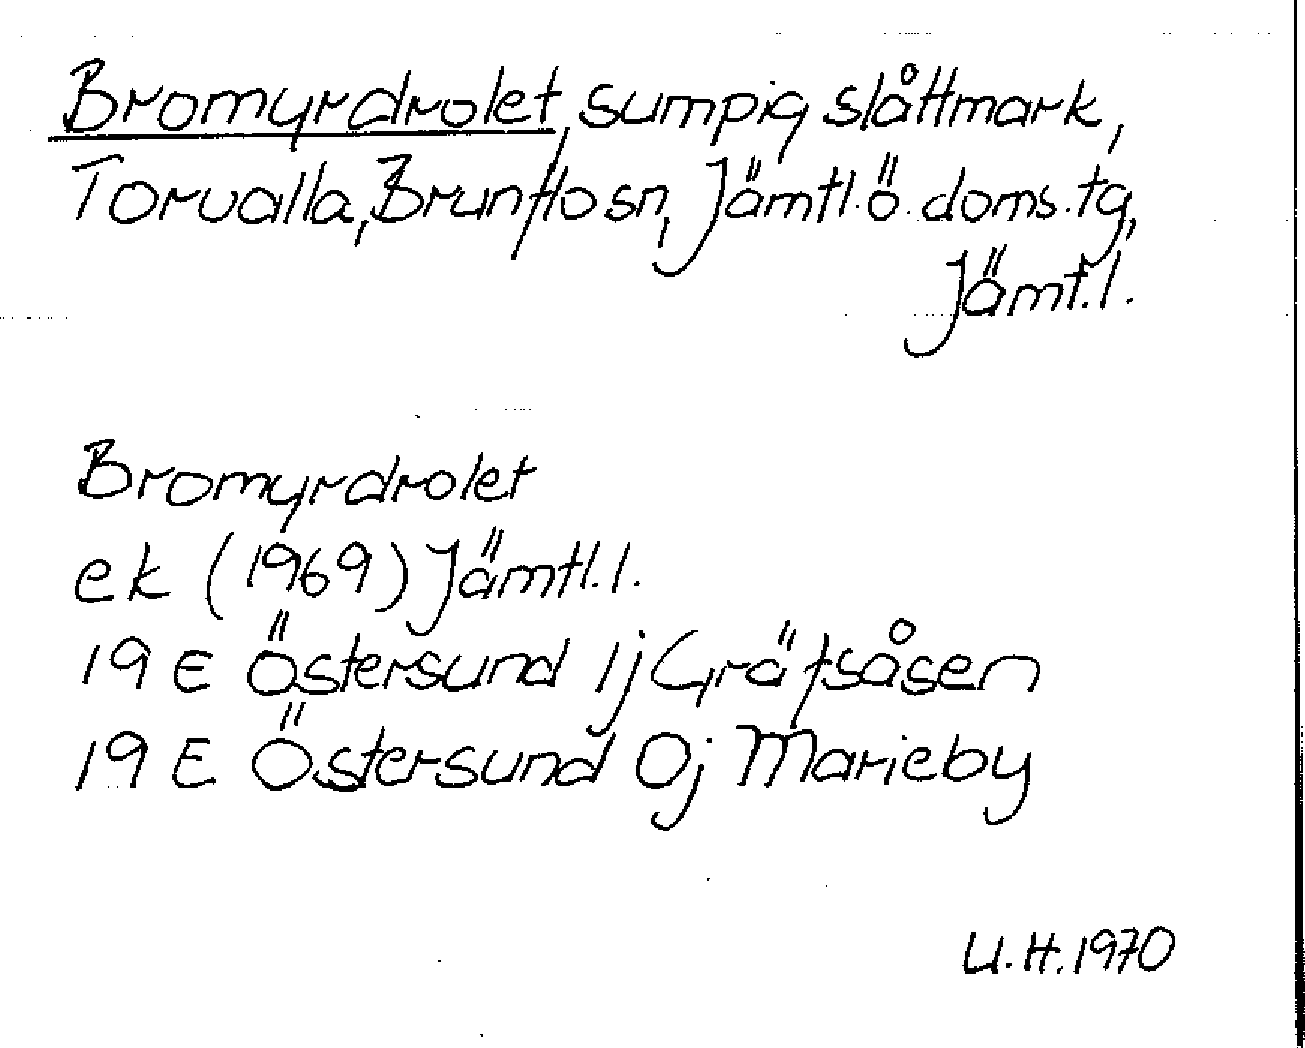 Bromyrdrolet, sumpig slåttmark,
Torvalla, Brunflo sn, Jämtl. ö. doms. tg,
Jämt. l.
Bromyrdrolet
ek (1969) Jämtl. l.
19 E Östersund 1j Gräfsåsen
19 E Östersund 0j Marieby
U.H. 1970